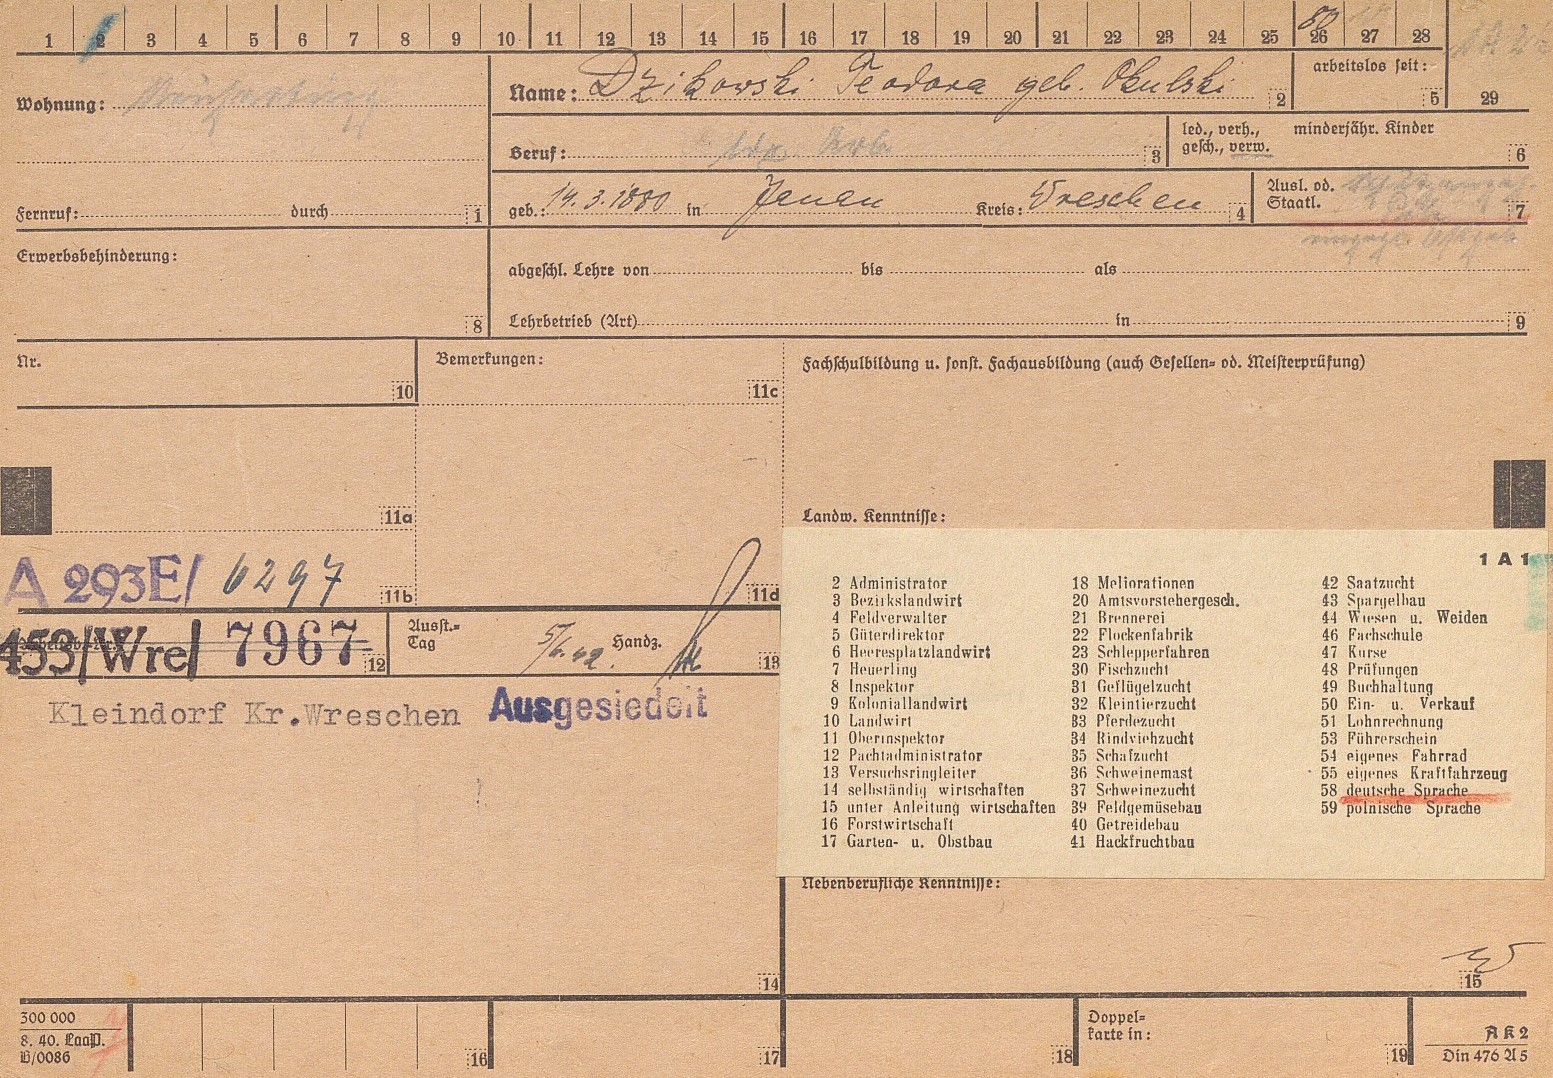 1 2 3 4 5 6 7 8 9 10 11 12 13 14 15 16 17 18 19 20 21 22 23 24 25 26 27 28
50
Wohnung:
Name: Dzikowski Teodora geb. Okulski 2
arbeitslos seit: 5
29
Beruf: 3
led., verh., gesch., verw.
minderjähr. Kinder 6
Fernruf: durch 1
geb.: 19.3.1880 in Janau Kreis: Wreschen 4
Ausl. od. Staatl. 7
Erwerbsbehinderung: 8
abgeschl. Lehre von bis als
Lehrbetrieb (Art) in 9
Nr. 10
Bemerkungen: 11c
Fachschulbildung u. sonst. Fachausbildung (auch Gesellen- od. Meisterprüfung)
11a
Landw. Kenntnisse:
A 293E/ 6297 11b
11d
453/Wre/ 7967 12
Ausst.-Tag 5/6.42. Handz. 13
Kleindorf Kr.Wreschen Ausgesiedelt
1 A 1
2 Administrator
3 Bezirkslandwirt
4 Feldverwalter
5 Güterdirektor
6 Heeresplatzlandwirt
7 Heuerling
8 Inspektor
9 Koloniallandwirt
10 Landwirt
11 Oberinspektor
12 Pachtadministrator
13 Versuchsringleiter
14 selbständig wirtschaften
15 unter Anleitung wirtschaften
16 Forstwirtschaft
17 Garten- u. Obstbau
18 Meliorationen
20 Amtsvorstehergesch.
21 Brennerei
22 Flockenfabrik
23 Schlepperfahren
30 Fischzucht
31 Geflügelzucht
32 Kleintierzucht
33 Pferdezucht
34 Rindviehzucht
35 Schafzucht
36 Schweinemast
37 Schweinezucht
39 Feldgemüsebau
40 Getreidebau
41 Hackfruchtbau
42 Saatzucht
43 Spargelbau
44 Wiesen u. Weiden
46 Fachschule
47 Kurse
48 Prüfungen
49 Buchhaltung
50 Ein- u. Verkauf
51 Lohnrechnung
53 Führerschein
54 eigenes Fahrrad
55 eigenes Kraftfahrzeug
58 deutsche Sprache
59 polnische Sprache
Nebenberufliche Kenntnisse:
14
15
300 000
8. 40. LaaP.
B/0086
16
17
18
Doppel-
karte in:
19
A K 2
Din 476 A 5